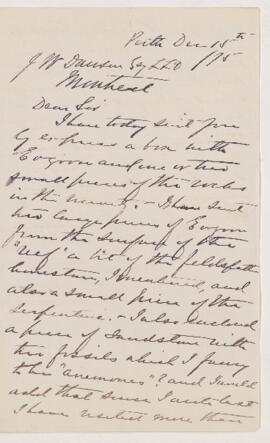 Perth Dec 15th /75
J W Dawson Esq LLD
Montreal
Dear Sir
I have today sent you
by express a box with
Eozoon and one or two
small pieces of the rocks
in the vicinity. I have sent
two large pieces of Eozoon
from the surface of the
"reef" a bit of the feldspathic
limestone, I mentioned, and
also a small piece of the
Serpentine. I also enclosed
a piece of Sandstone with
two fossils which I fancy
to be "anemones"? and I would
add that since I wrote last
I have visited more than